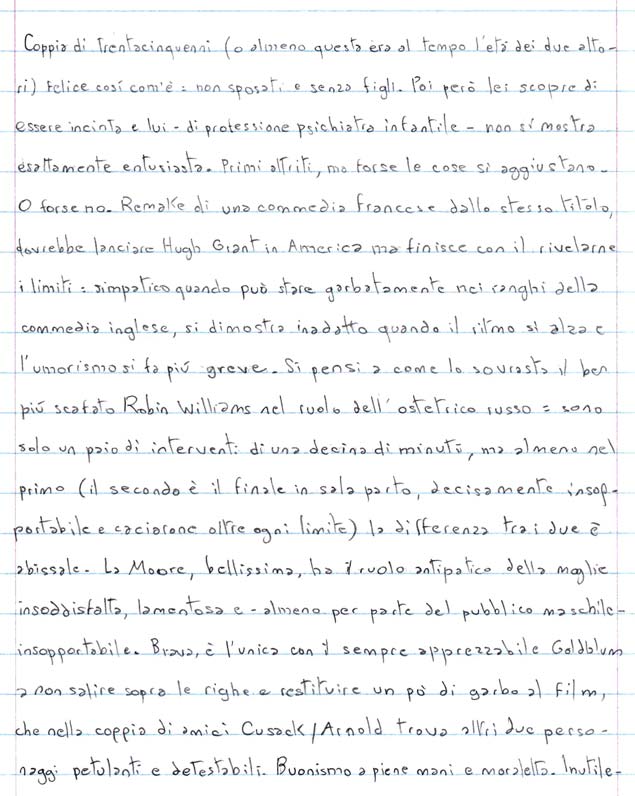 Coppia di Trentacinquenni (o almeno questa era al tempo l'età dei due atto-
ri) Felice così com'è: non sposati e senza figli. Poi però lei scopre di
essere incinta e lui - di professione psichiatra infantile - non si mostra
esattamente entusiasta. Primi attriti, ma forse le cose si aggiustano.
O forse no. Remake di una commedia francese dallo stesso titolo,
dovrebbe lanciare Hugh Grant in America ma finisce con il rivelarne
i limiti: simpatico quando può stare garbatamente nei ranghi della
commedia inglese, si dimostra inadatto quando il ritmo si alza e
l'umorismo si fa più greve. Si pensi a come lo sovrasta il ben
più scafato Robin Williams nel ruolo dell'ostetrico russo: sono
solo un paio di interventi di una decina di minuti, ma almeno nel
primo (il secondo è il finale in sala parto, decisamente insop-
portabile e caciarone oltre ogni limite) la differenza tra i due è
abissale. La Moore, bellissima, ha il ruolo antipatico della moglie
insoddisfatta, lamentosa e - almeno per parte del pubblico maschile -
insopportabile. Brava, è l'unica con il sempre apprezzabile Goldblum
a non salire sopra le righe e restituire un pò di garbo al film,
che nella coppia di amici Cusack/Arnold trova altri due perso-
naggi petulanti e detestabili. Buonismo a piene mani e moraletta. Inutile.